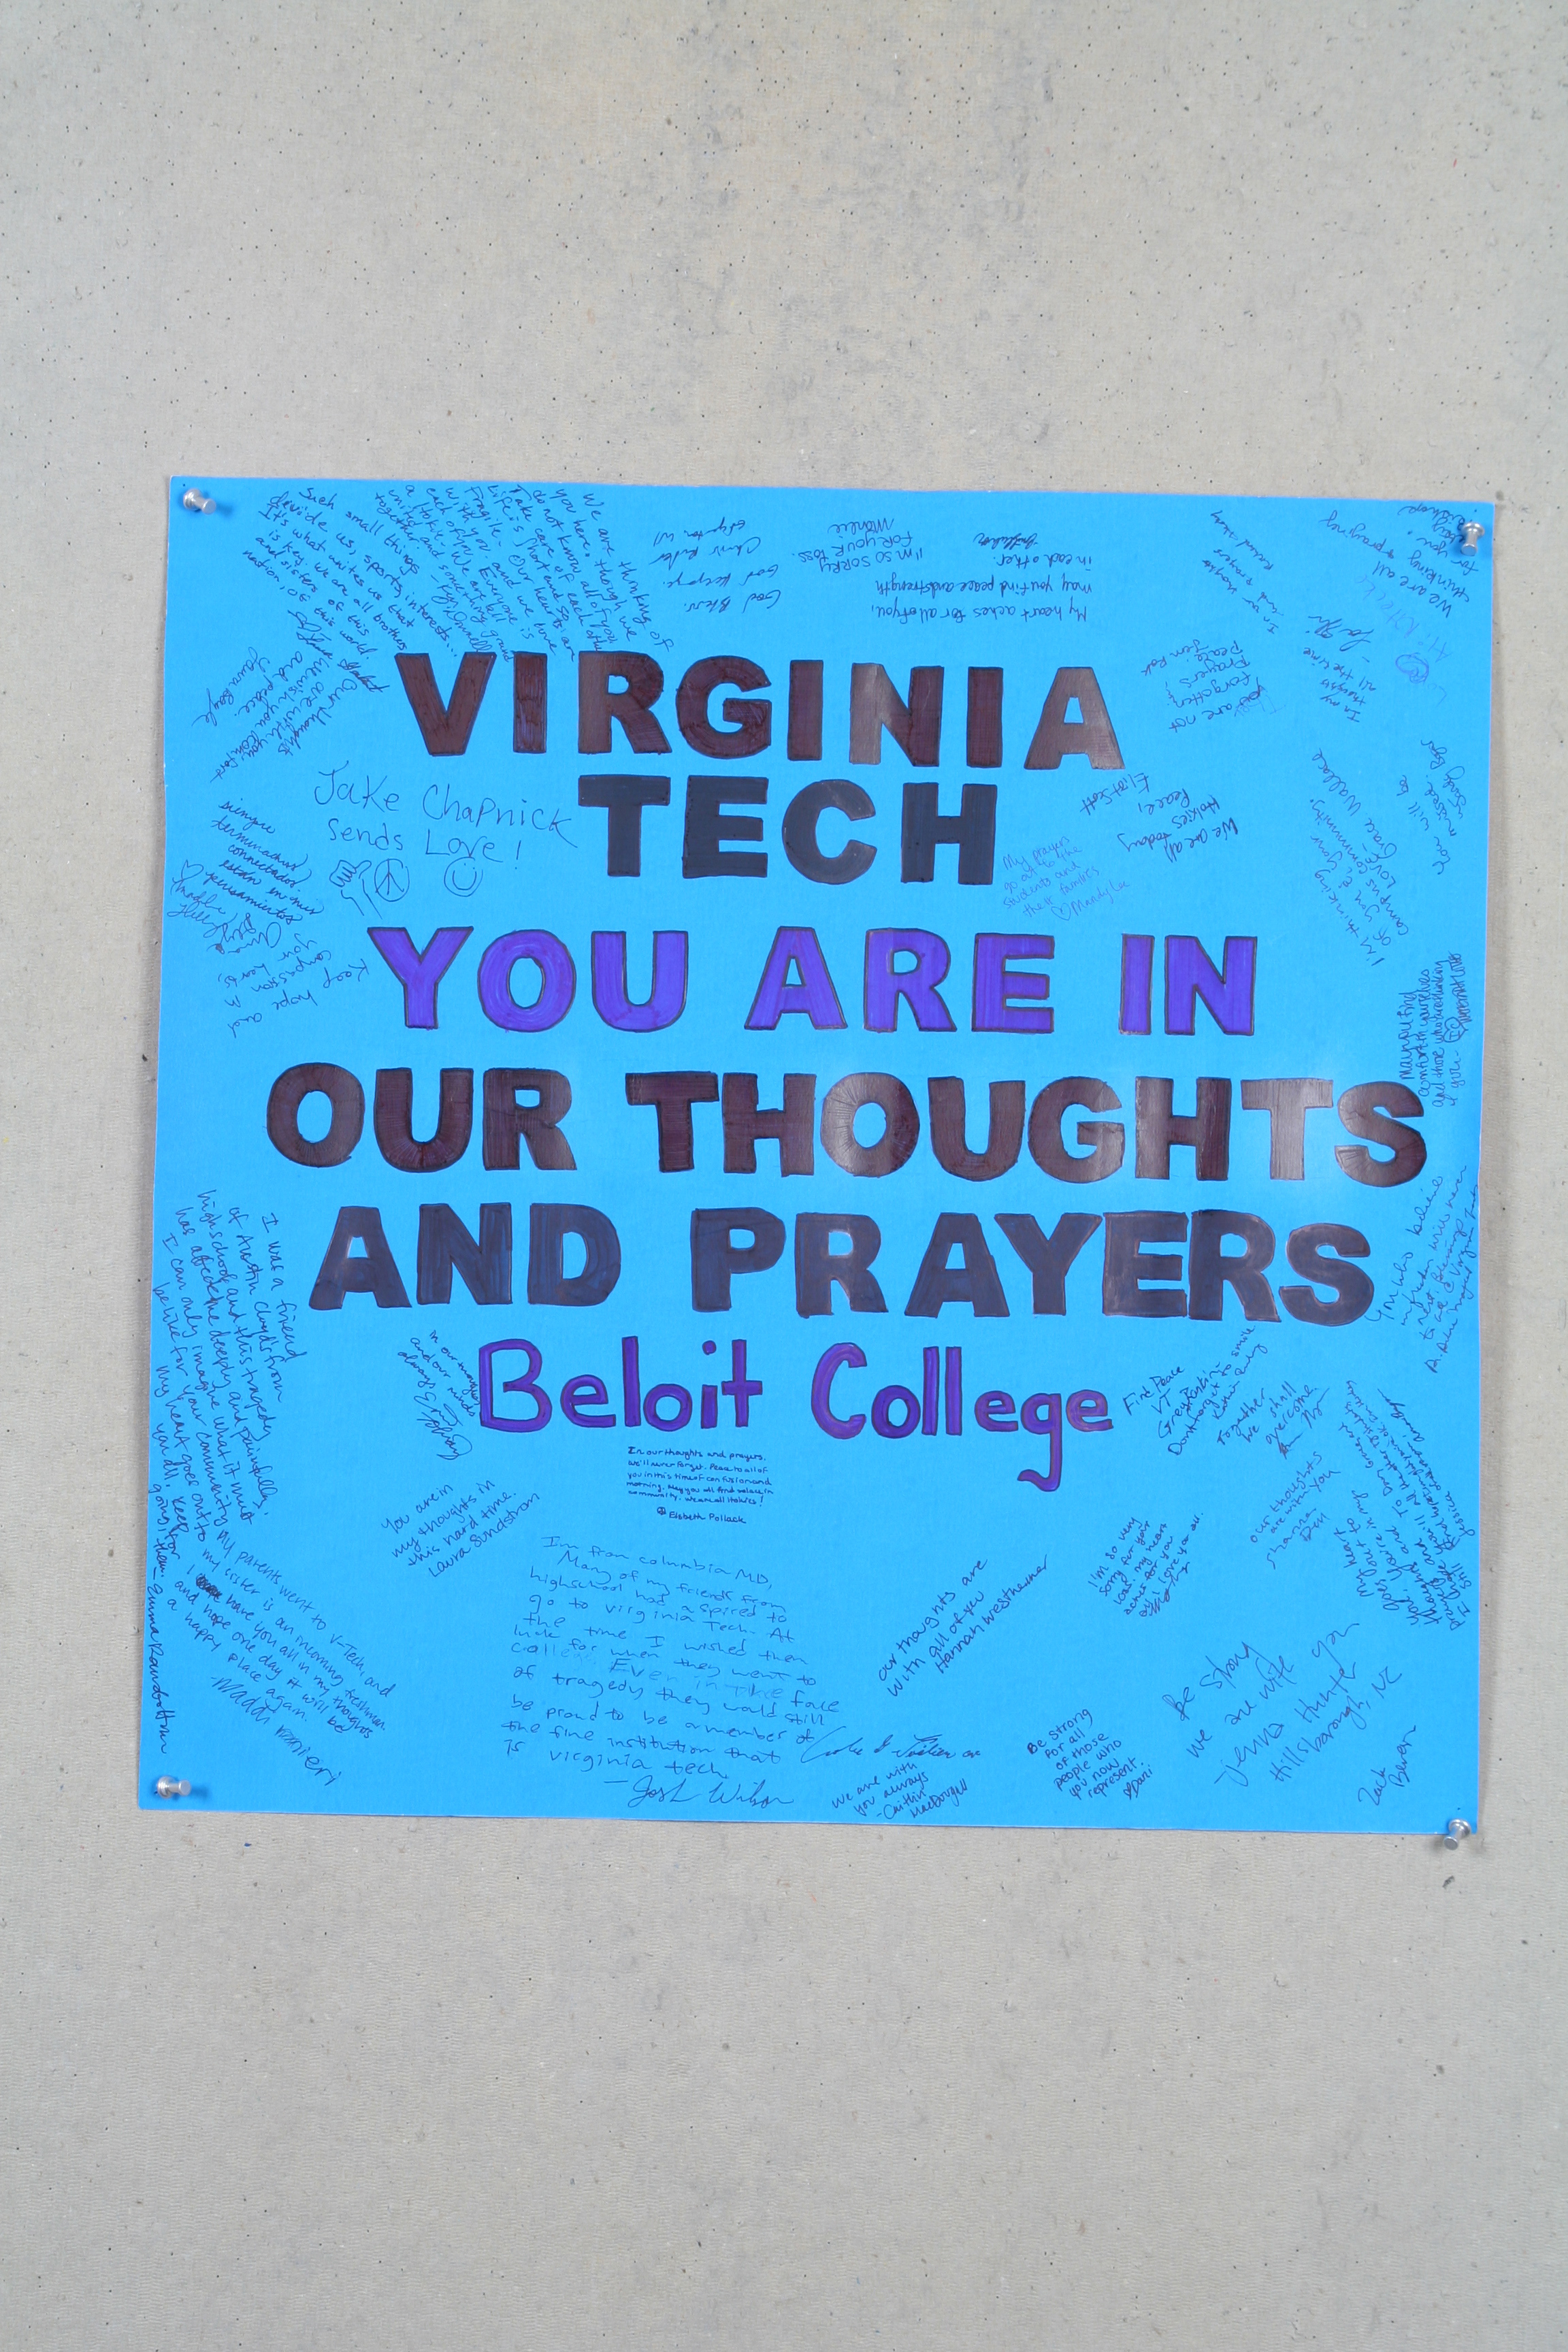 VIRGINIA
TECH
YOU ARE IN
OUR THOUGHTS
AND PRAYERS
Beloit College
We are thinking of
you here. though we
do not know all of you
Take care of each other
Life is short and so
fragile - Our hearts are
with you. Everyone is
each of you and we love
a Hokie. We are all
united
together.
Such small things
devide us, sports, interests...
It's what unites us that
is key. We are all brothers
and sisters of this
nation. Of this world.
Our thoughts
are with you
and we wish you comfort
and peace.
God Bless.
God Keep you.
Chris
Edgerton, WI
I'm SO SORRY
FOR YOUR LOSS.
My heart aches for all of you,
may you find peace and strength
in each other.
In our thoughts
and prayers
We are all
thinking
for you!
+ praying
In my
thoughts
all the time
You are not
forgotten.
Prayers &
Peace
We are all
Hokies today
Peace,
Eliot Scott
My prayers
go out to the
students and
their families
♡ Mandy Lee
I'm thinking
of you
campus community.
Love,
Grace Wallace
Jake Chapnick
sends Love!
siempre
terminamos
conectados.
estan en mis
pensamientos
Keep
hope
compassion
your hearts
May you find
comfort in yourselves
and those who are thinking
of you-
You who believe
I was a friend
of Austin Cloyd's from
highschool and this tragedy
has affected me deeply and painfully.
I can only imagine what it must
be like for your community
My heart goes out to
you all. Keep
going, for
them. - Emma Rowbottom
My parents went to V-Tech, and
my sister is an incoming freshman.
I have you all in my thoughts
and hope one day it will be
a happy place again.
-Maddi Ranieri
in our thoughts
and our minds
always
In our thoughts and prayers.
We'll never forget. Peace to all of
you in this time of confusion and
morning. May you all find solace in
community. We are all Hokies!
☮ Elsbeth Pollack
You are in
my thoughts in
this hard time.
Laura Sundstrom
Im from columbia MD,
Many of my friends from
highschool had aspired to
go to virginia Tech. At
the time I wished them
luck for when they went to
college. Even in the face
of tragedy they would still
be proud to be a member of
the fine institution that
is virginia tech.
- Josh Wilson
our thoughts are
with all of you
Hannah Westheimer
We are with
you always
-Caitlin
MacDougall
Be strong
for all
of those
people who
you now
represent.
I'm so very
sorry for your
loss. my heart
aches for you
all. I love you all.
Find Peace
VT
Grey Larkin
Don't forget to smile
Together
we shall
overcome
our thoughts
are with you
Shanna
Dell
Be Strong
we are with you
Jenna Hunter
Hillsborough, NC
Zack
Bever